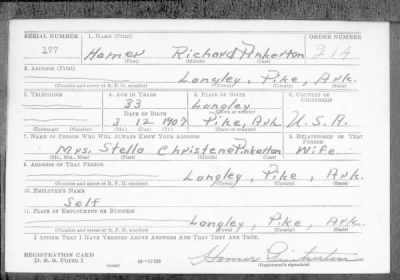 SERIAL NUMBER 1. NAME (Print) ORDER NUMBER
177 Homer Richard Pinkerton 214
(First) (Middle) (Last)
2. ADDRESS (Print)
Langley, Pike, Ark.
(Number and street or R. F. D. number) (Town) (County) (State)
3. TELEPHONE 4. AGE IN YEARS 5. PLACE OF BIRTH 6. COUNTRY OF CITIZENSHIP
33 Langley
DATE OF BIRTH (Town or county)
3 12 1907 Pike, Ark U.S.A.
(Exchange) (Number) (Mo.) (Day) (Yr.) (State or country)
7. NAME OF PERSON WHO WILL ALWAYS KNOW YOUR ADDRESS 8. RELATIONSHIP OF THAT PERSON
Mrs. Stella Christene Pinkerton Wife
(Mr., Mrs., Miss) (First) (Middle) (Last)
9. ADDRESS OF THAT PERSON
Langley, Pike, Ark.
(Number and street or R. F. D. number) (Town) (County) (State)
10. EMPLOYER'S NAME
Self
11. PLACE OF EMPLOYMENT OR BUSINESS
Langley, Pike, Ark.
(Number and street or R. F. D. number) (Town) (County) (State)
I AFFIRM THAT I HAVE VERIFIED ABOVE ANSWERS AND THAT THEY ARE TRUE.
REGISTRATION CARD
D. S. S. Form 1 (over) 16-17105 Homer Pinkerton
(Registrant's signature)